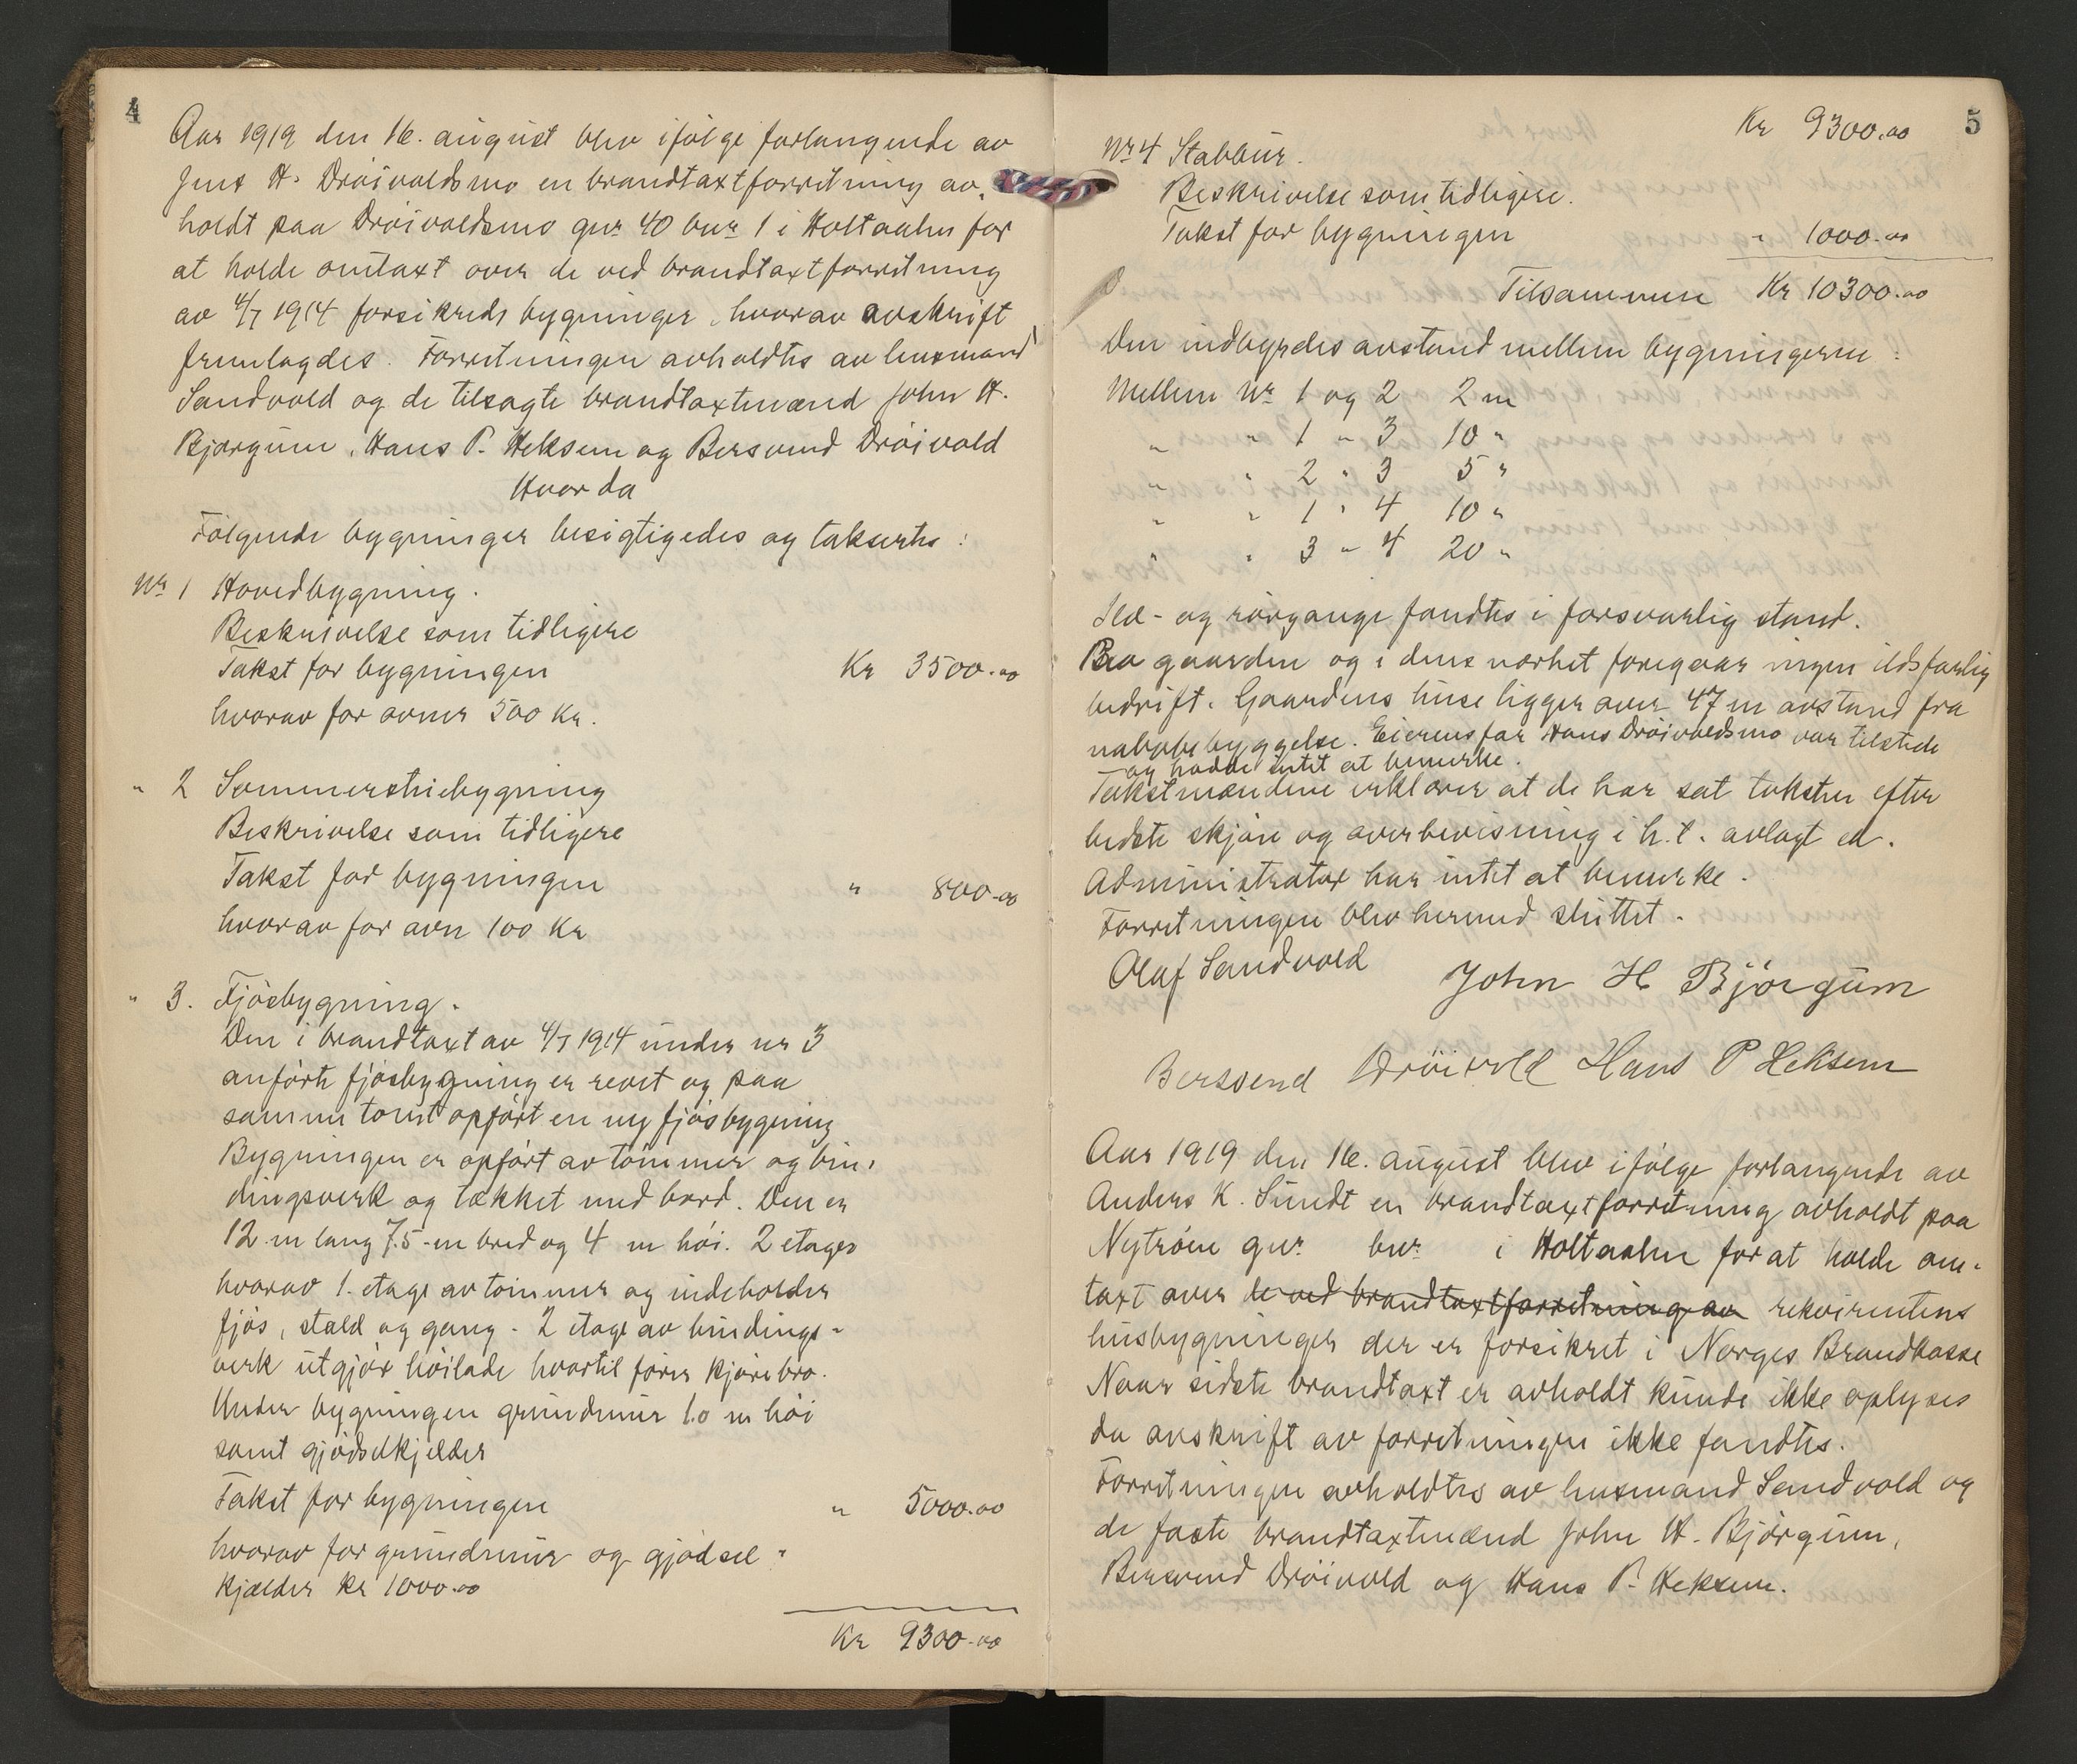 4
Aar 1919 den 16. august blev ifölge forlangende av
Jens H. Dröivoldsmo en brandtaxtforretning av-
holdt paa Dröivoldsmo gnr 40 bnr 1 i Holtaalen for
at holde omtaxt over de ved brandtaxtforretning
av 4/7 1914 forsikrede bygninger, hvorav avskrift
fremlagdes. Forretningen avholdtes av lensmand
Sandvold og de tilsagte brandtaxtmænd John H.
Bjørgum, Hans P. Heksem og Bersvend Dröivold
Hvor da
Følgende bygninger besigtigedes og taksertes:
Nr 1 Hovedbygning.
Beskrivelse som tidligere
Takst for bygningen Kr 3500.00
hvorav for ovner 500 Kr.
" 2 Sommerstuebygning
Beskrivelse som tidligere
Takst for bygningen " 800.00
hvorav for ovn 100 Kr
" 3. Fjösbygning.
Den i brandtaxt av 4/7 1914 under nr 3
anförte fjösbygning er revet og paa
samme tomt opfört en ny fjösbygning
Bygningen er opfört av tömmer og bin-
dingsverk og tækket med bord. Den er
12 m lang 7.5 m bred og 4 m höi. 2 etager
hvorav 1. etage av tömmer og indeholder
fjös, stald og gang. 2 etage av bindings-
verk utgjör höilade hvortil förer kjörebro.
Under bygningen grundmur 1.0 m höi
samt gjödselkjelder
Takst for bygningen " 5000.00
hvorav for grundmur og gjödsel-
kjælder kr 1000.00
Kr 9300.00
5
Kr 9300.00
Nr 4 Stabbur.
Beskrivelse som tidligere.
Takst for bygningen " 1000.00
Tilsammen Kr 10300.00
Den indbyrdes avstand mellem bygningerne:
Mellem Nr 1 og 2 2 m
" " 1 " 3 10 "
" " 2 " 3 5 "
" " 1 " 4 10 "
" " 3 " 4 20 "
Ild- og rörgange fandtes i forsvarlig stand.
Paa gaarden og i dens nærhet foregaar ingen ildsfarlig
bedrift. Gaardens huse ligger over 47 m avstand fra
nabobebyggelse. Eierens far Hans Dröivoldsmo var tilstede
og hadde intet at bemerke.
Takstmændene erklærer at de har sat taksten efter
bedste skjön og overbevisning i h. t. avlagt ed.
Administrator har intet at bemerke.
Forretningen blev hermed sluttet.
Oluf Sandvold John H Bjørgum
Berssend Dröivold Hans P Heksem
Aar 1919 den 16. august blev ifölge forlangende av
Anders K. Sundt en brandtaxtforretning avholdt paa
Nytröen gnr. bnr. i Holtaalen for at holde om-
taxt over de ved brandtaxtforretning av rekvirentens
husbygninger der er forsikret i Norges Brandkasse
Naar sidste brandtaxt er avholdt kunde ikke oplyses
da avskrift av forretningen ikke fandtes.
Forretningen avholdtes av lensmand Sandvold og
de faste brandtaxtmænd John H. Bjørgum,
Bersvend Dröivold og Hans P. Heksem.